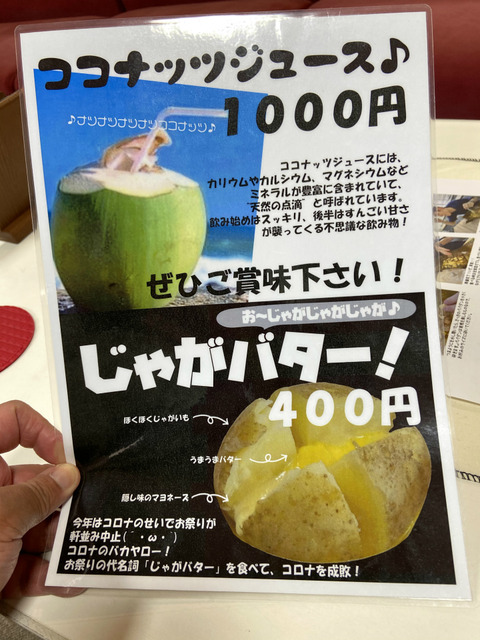 ココナッツジュース♪
1000円
♪ナツナツナツナツココナッツ♪
ココナッツジュースには、
カリウムやカルシウム、マグネシウムなど
ミネラルが豊富に含まれていて、
"天然の点滴"と呼ばれています。
飲み始めはスッキリ、後半はすんごい甘さ
が襲ってくる不思議な飲み物！
ぜひご賞味下さい！
お〜じゃがじゃがじゃが♪
じゃがバター！
400円
ほくほくじゃがいも
うまうまバター
隠し味のマヨネーズ
今年はコロナのせいでお祭りが
軒並み中止(´・ω・`)
コロナのバカヤロー！
お祭りの代名詞「じゃがバター」を食べて、コロナを成敗！